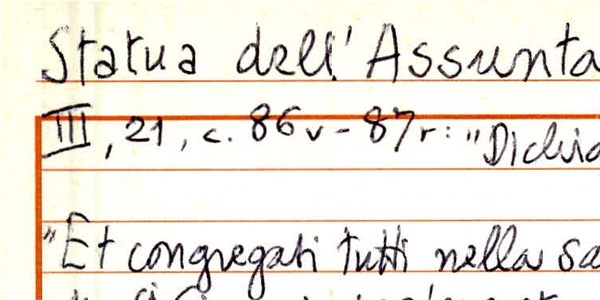 Statua dell'Assunta
III, 21, c. 86v - 87r: "Dichia
"Et congregati tutti nella sa